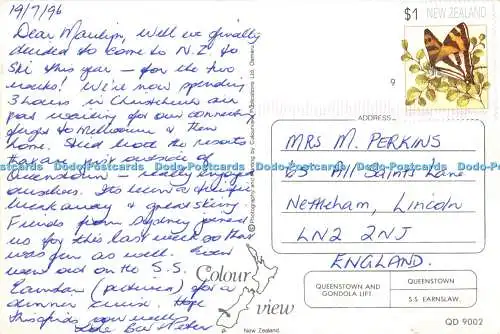 19/7/96
Dear Marilyn, Well we finally
decided to come to N.Z. to
Ski this year - for the two
weeks! We're now spending
3 hours in Christchurch air
port waiting for our connecting
flight to Melbourne & then
home.
that are just outside of
Queenstown - really enjoyed
ourselves. Its been a
break away & great skiing.
Friends from Sydney joined
us for this last week so that
was fun as well. Even
went out on the S.S.
Earnslaw (pictured) for a
dinner cruise. Hope
this finds you well.
Love Bev & Peter
$1 NEW ZEALAND
9
ADDRESS
MRS M. PERKINS
65 All Saints Lane
Nettleham, Lincoln
LN2 2NJ
ENGLAND.
Colour
view
New Zealand.
QUEENSTOWN AND
GONDOLA LIFT.
QUEENSTOWN
S.S. EARNSLAW.
QD 9002
Dodo-Postcards Dodo-Postcards Dodo-Postcards Dodo-Postcards Dodo-Postcards